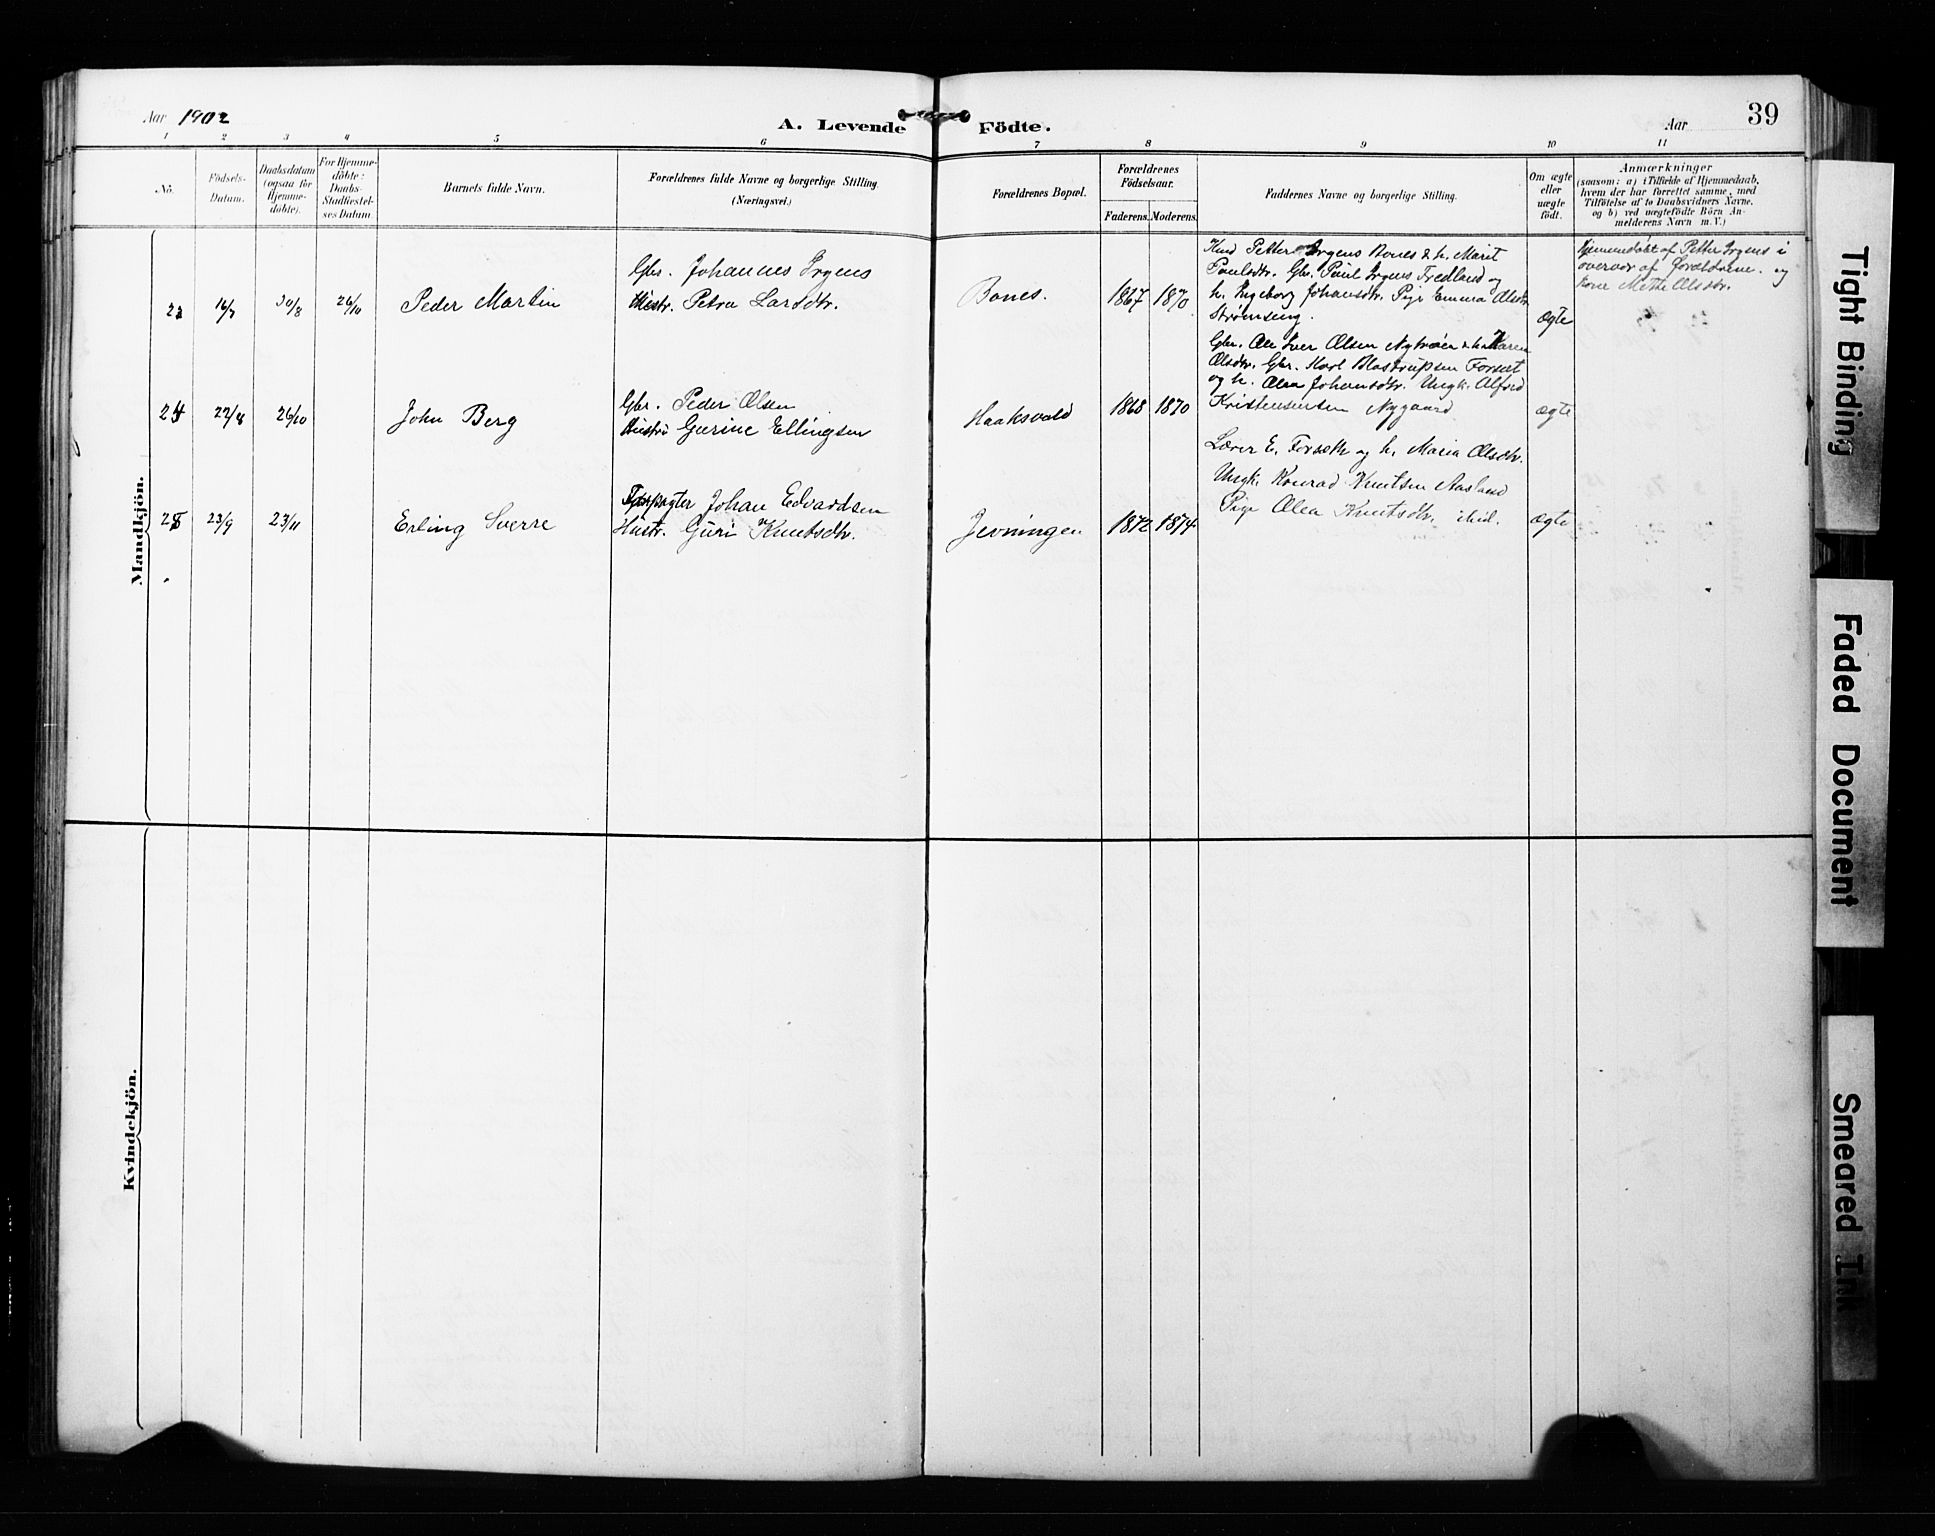 Aar 1902
A. Levende Födte.
Aar
39
1 2 3 4 5 6 7 8 9 10 11
No.
Födsels-
Datum.
Daabsdatum
(ogsaa för
Hjemme-
döbte).
For Hjemme-
döbte:
Daabs-
Stadfæstel-
ses Datum.
Barnets fulde Navn.
Forældrenes fulde Navne og borgerlige Stilling.
(Næringsvei.)
Forældrenes Bopæl.
Forældrenes
Födselsaar.
Faderens. Moderens.
Faddernes Navne og borgerlige Stilling.
Om ægte
eller
uægte
födt.
Anmærkninger
(saasom: a) i Tilfælde af Hjemmedaab,
hvem der har forrettet samme, med
Tilföielse af to Daabsvidners Navne,
og b) ved uægtefödte Börn An-
melderens Navn m.V.)
Mandkjön.
23 16/7 30/8 26/10
Peder Martin
Gbr. Johannes Irgens
Hustr. Petra Larsdtr.
Bones.
1867 1870
Petter Irgens Bones & h. Marit
Paulsdtr. Gbr. Paul Irgens Fredland og
h. Ingeborg Johansdtr. Pige Emma Olsdtr.
Strömseng.
ægte
Hjemmedöbt af Petter Irgens i
overvær af forældrene og
kone Mette Olsdtr.
24 22/8 26/10
John Berg
Gbr. Peder Olsen
Hustru Gurine Ellingsen
Haaksvold
1868 1870
Gbr. Ole Iver Olsen Nytröen & h. Karen
Olsdtr. Gbr. Karl Blostrupsen Forset
og h. Olea Johansdtr. Ungk. Alfred
Kristensen Nygaard
ægte
25 23/9 23/11
Erling Sverre
Forpagter Johan Edvardsen
Hustr. Guri Knutsdtr.
Jevningen
1872 1874
Lærer E. Forseth og h. Maria Olsdtr.
Ungk. Konrad Knutsen Aasland
Pige Olea Knutsdtr. ibid.
ægte
Kvindekjön.
Tight Binding
Faded Document
Smeared Ink